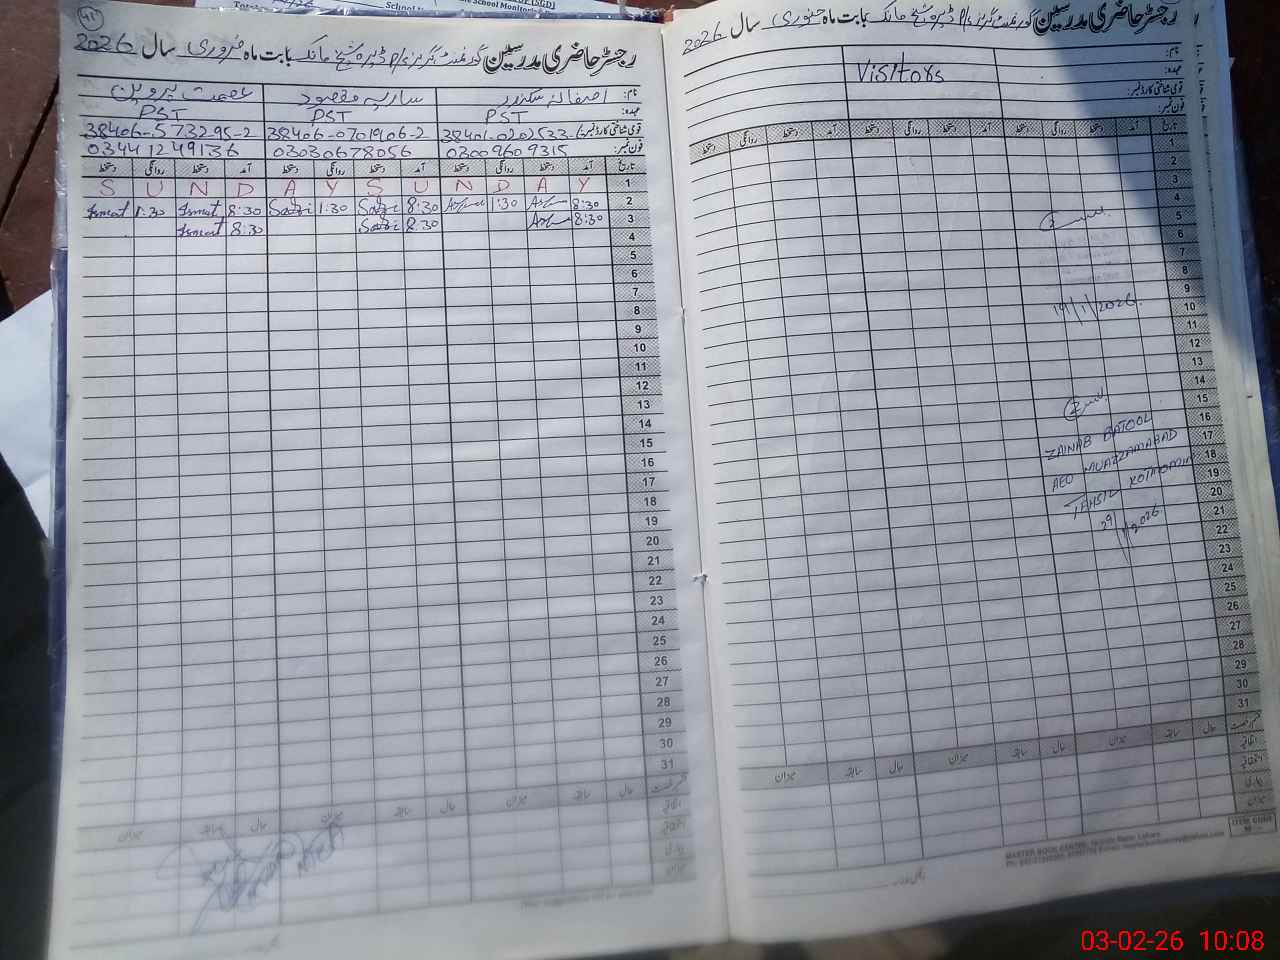 41
رجسٹر حاضری مدرسین گورنمنٹ گرلز P/S ڈیرہ شیخ مانک بابت ماہ فروری سال 2026
نام: افغانہ سکندر ساریہ مقصود عصمت پروین
عہدہ: PST PST PST
قومی شناختی کارڈ نمبر: 38406-0701906-2 38406-573295-2
فون نمبر: 03009609315 03030678056 03441249136
تاریخ آمد دستخط روانگی دستخط آمد دستخط روانگی دستخط آمد دستخط روانگی دستخط
1 S U N D A Y S U N D A Y
2 8:30 1:30 8:30 Sadi 1:30 Sadi 8:30 Ismat 1:30 Ismat
3 8:30 8:30 Sadi 8:30 Ismat
4
5
6
7
8
9
10
11
12
13
14
15
16
17
18
19
20
21
22
23
24
25
26
27
28
29
30
31
حال سابقہ میزان حال سابقہ میزان حال سابقہ میزان
رجسٹر حاضری مدرسین گورنمنٹ گرلز P/S ڈیرہ شیخ مانک بابت ماہ جنوری سال 2026
نام:
Visitors
عہدہ:
قومی شناختی کارڈ نمبر:
فون نمبر:
تاریخ آمد دستخط روانگی دستخط آمد دستخط روانگی دستخط آمد دستخط روانگی دستخط
1
2
3
4
5
6
7
8
9
10
11
12
13
14
15
16
17
18
19
20
21
22
23
24
25
26
27
28
29
30
31
19/1/2026.
ZAINAB BATOOL
AEO MUAZZAMABAD
TEHSIL KOTMOMIN
29/1/2026.
حال سابقہ میزان حال سابقہ میزان حال سابقہ میزان
ITEM CODE
MASTER BOOK CENTRE
03-02-26 10:08